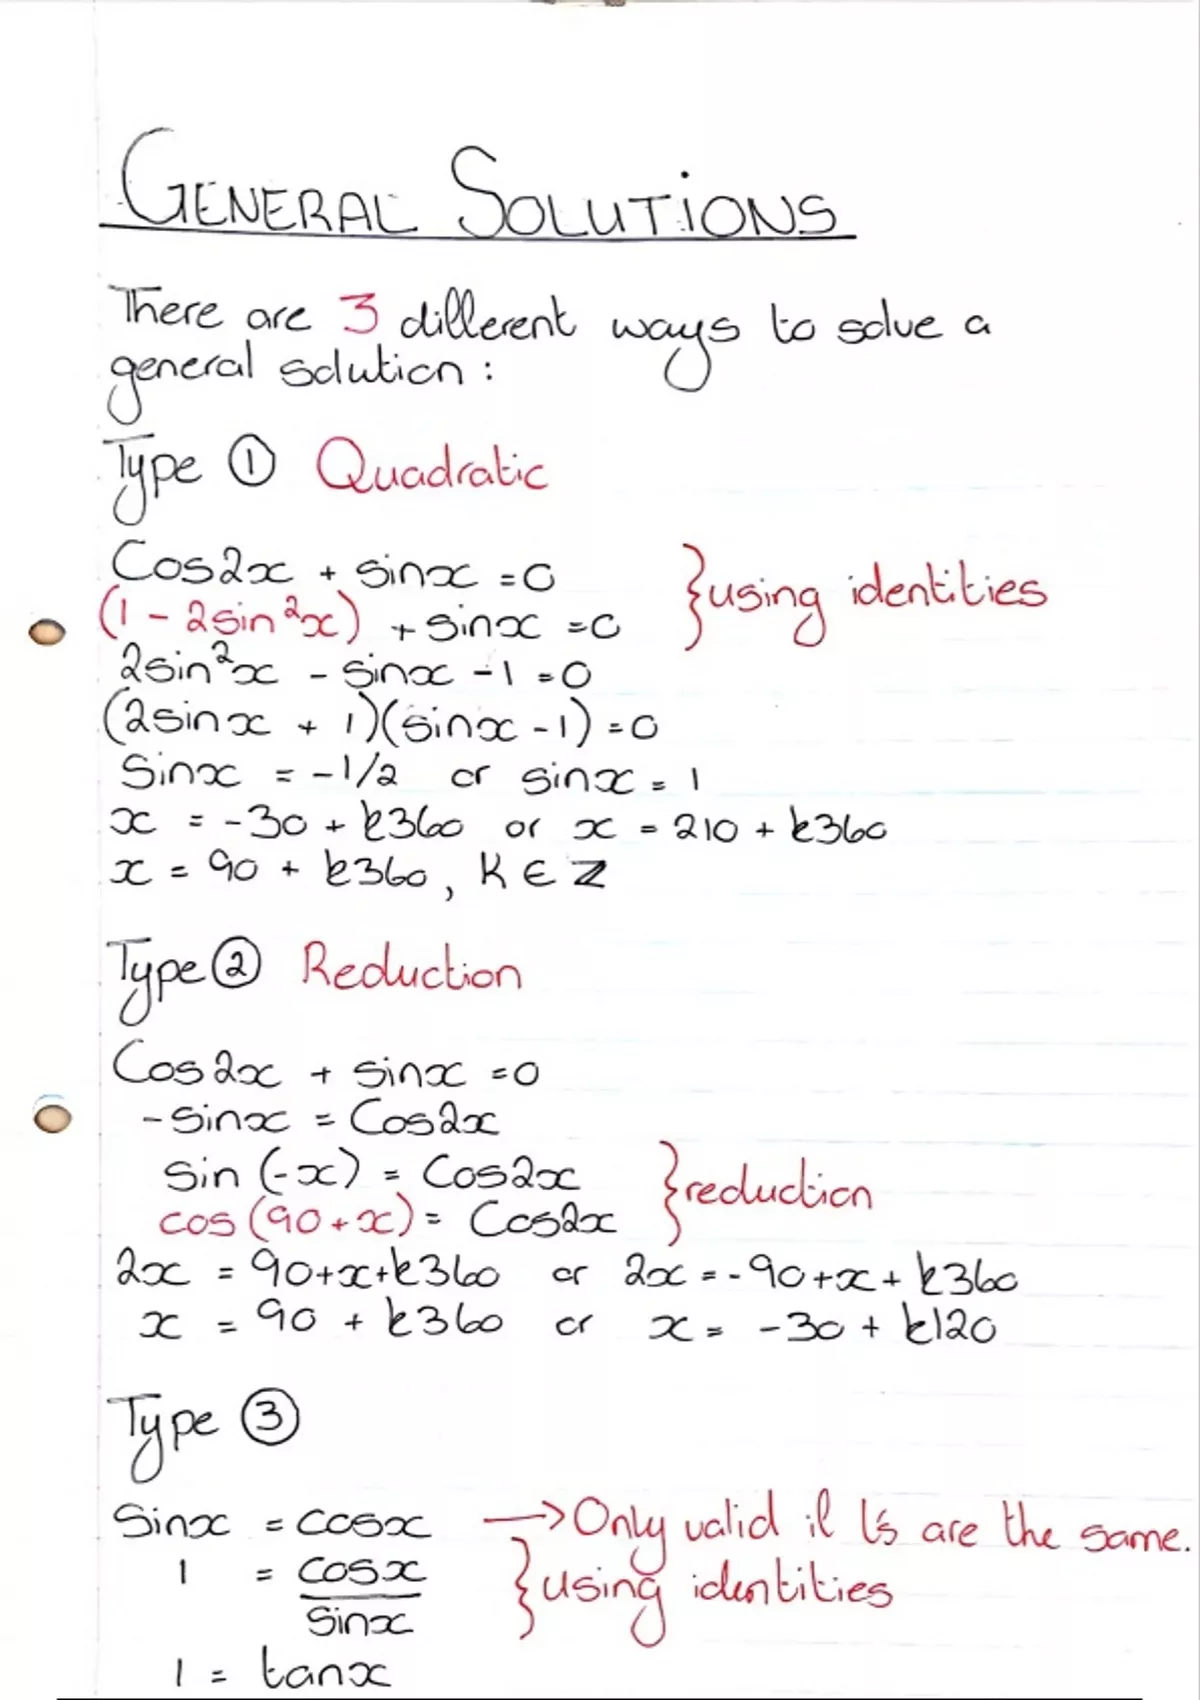 GENERAL SOLUTIONS
There are 3 different ways to solve a
general solution :
Type ① Quadratic
Cos2x + sinx = 0
(1 - 2sin²x) + sinx = 0
} using identities
2sin²x - sinx - 1 = 0
(2sinx + 1)(sinx - 1) = 0
Sinx = -1/2 or sinx = 1
x = -30 + k360 or x = 210 + k360
x = 90 + k360, K ∈ Z
Type ② Reduction
Cos2x + sinx = 0
-Sinx = Cos2x
Sin (-x) = Cos2x
cos (90 + x) = Cos2x
} reduction
2x = 90+x+k360 or 2x = -90+x+k360
x = 90 + k360 or x = -30 + k120
Type ③
Sinx = cosx → Only valid if ∠s are the same.
1 = cosx
sinx
} using identities
1 = tanx